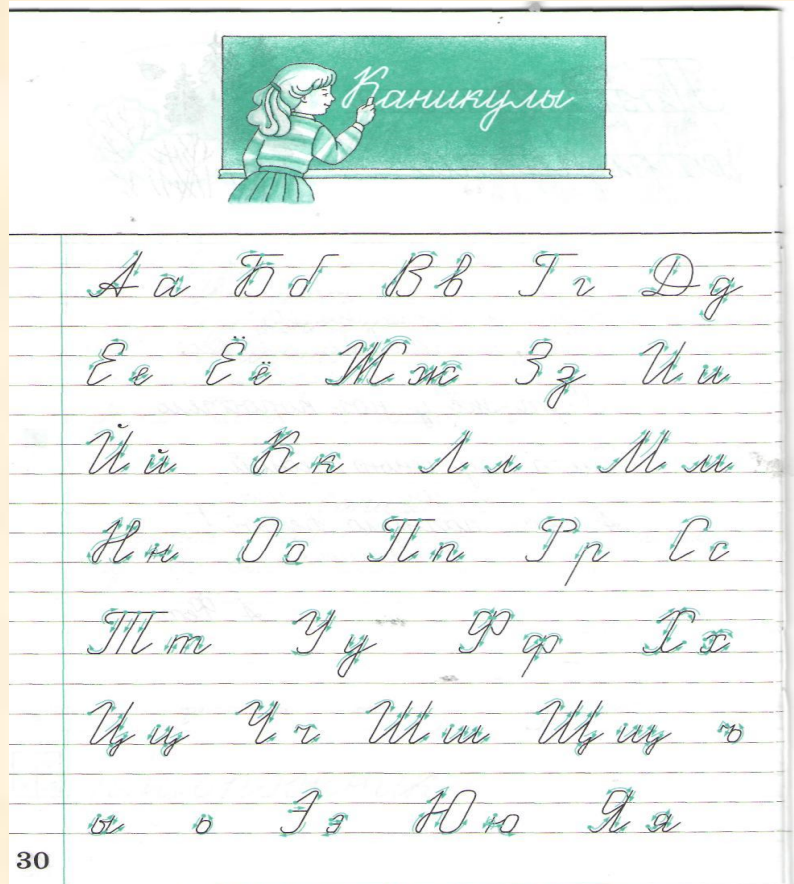 Каникулы
Аа Бб Вв Гг Дд
Ее Ёё Жж Зз Ии
Йй Кк Лл Мм
Нн Оо Пп Рр Сс
Тт Уу Фф Хх
Цц Чч Шш Щщ ъ
ы ь Ээ Юю Яя
30